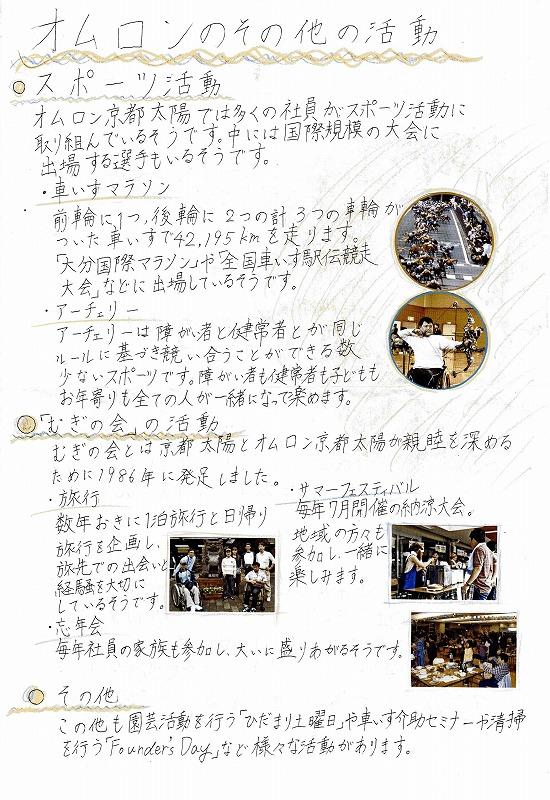 オムロンのその他の活動
スポーツ活動
オムロン京都太陽では多くの社員がスポーツ活動に
取り組んでいるそうです。中には国際規模の大会に
出場する選手もいるそうです。
・車いすマラソン
前輪に1つ,後輪に2つの計3つの車輪が
ついた車いすで42,195kmを走ります。
「大分国際マラソン」や「全国車いす駅伝競走
大会」などに出場しているそうです。
・アーチェリー
アーチェリーは障がい者と健常者とが同じ
ルールに基づき競い合うことができる数
少ないスポーツです。障がい者も健常者も子どもも
お年寄りも全ての人が一緒になって楽めます。
「むぎの会」の活動
むぎの会とは京都太陽とオムロン京都太陽が親睦を深める
ために1986年に発足しました。
・旅行
数年おきに1泊旅行と日帰り
旅行を企画し、
旅先での出会いと
経験を大切に
しているそうです。
・サマーフェスティバル
毎年7月開催の納涼大会。
地域の方々も
参加し、一緒に
楽しみます。
・忘年会
毎年社員の家族も参加し、大いに盛りあがるそうです。
その他
この他も園芸活動を行う「ひだまり土曜日」や車いす介助セミナーや清掃
を行う「Founder's Day」など様々な活動があります。